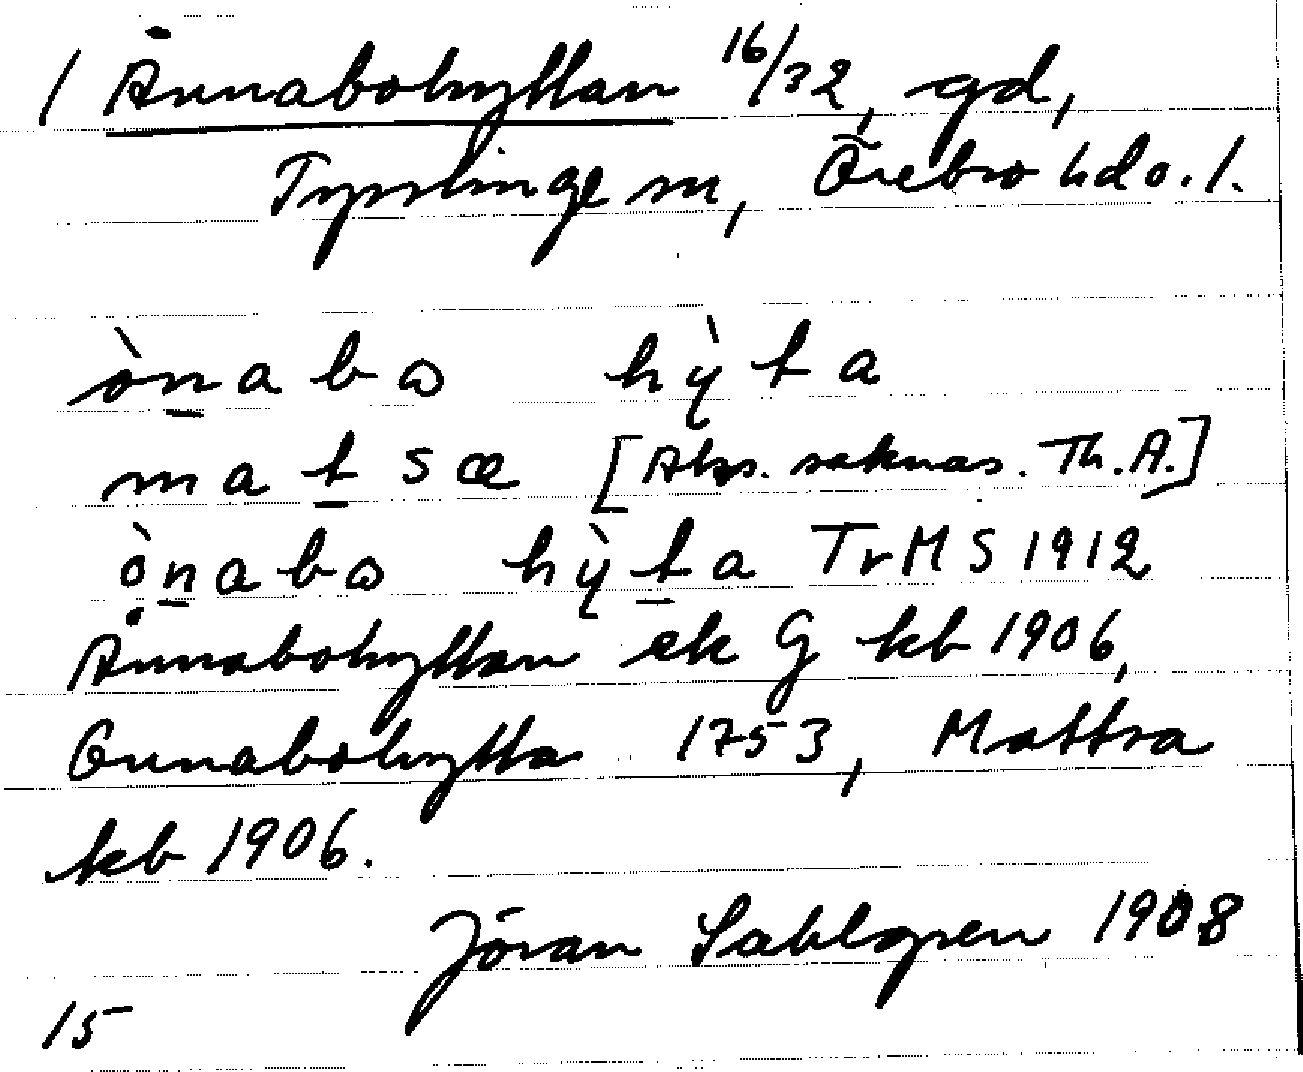 1 Ånnabohyttan 16/32, gd,
Tysslinge sn, Örebro hd o. l.
ònabω hỳta
matsæ [Aks. saknas. Th. A.]
ònabω hỳta TrMS 1912
Ånnabohyttan ek G kb 1906,
Onnabohytta 1753, Mattsa
kb 1906.
Jöran Sahlgren 1908
15